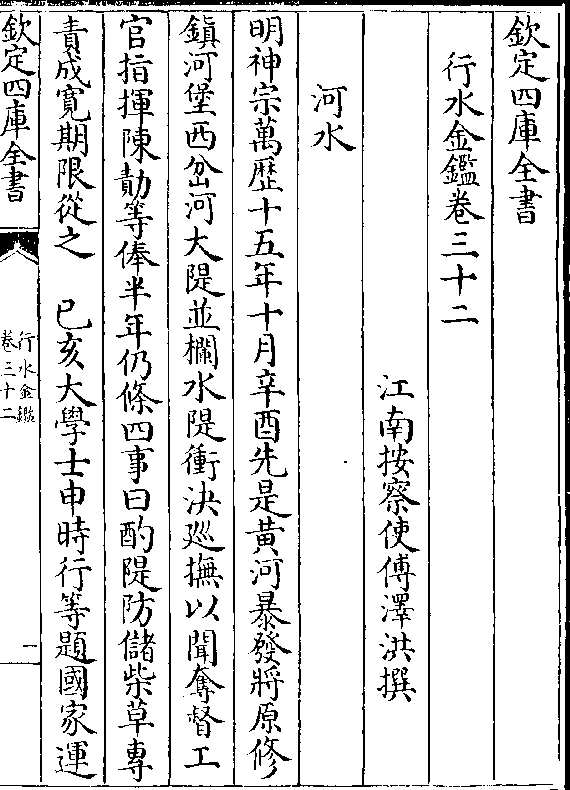 欽定四庫全書
行水金鑑卷三十二
江南按察使傅澤洪撰
河水
明神宗萬歷十五年十月辛酉先是黃河暴發將原修
鎮河堡西岔河大隄並欄水隄衝決廵撫以聞奪督工
官指揮陳勣等俸半年仍條四事曰酌隄防儲柴草專
責成寛期限從之　已亥大學士申時行等題國家運
欽定四庫全書
行水金鑑
卷三十二
一